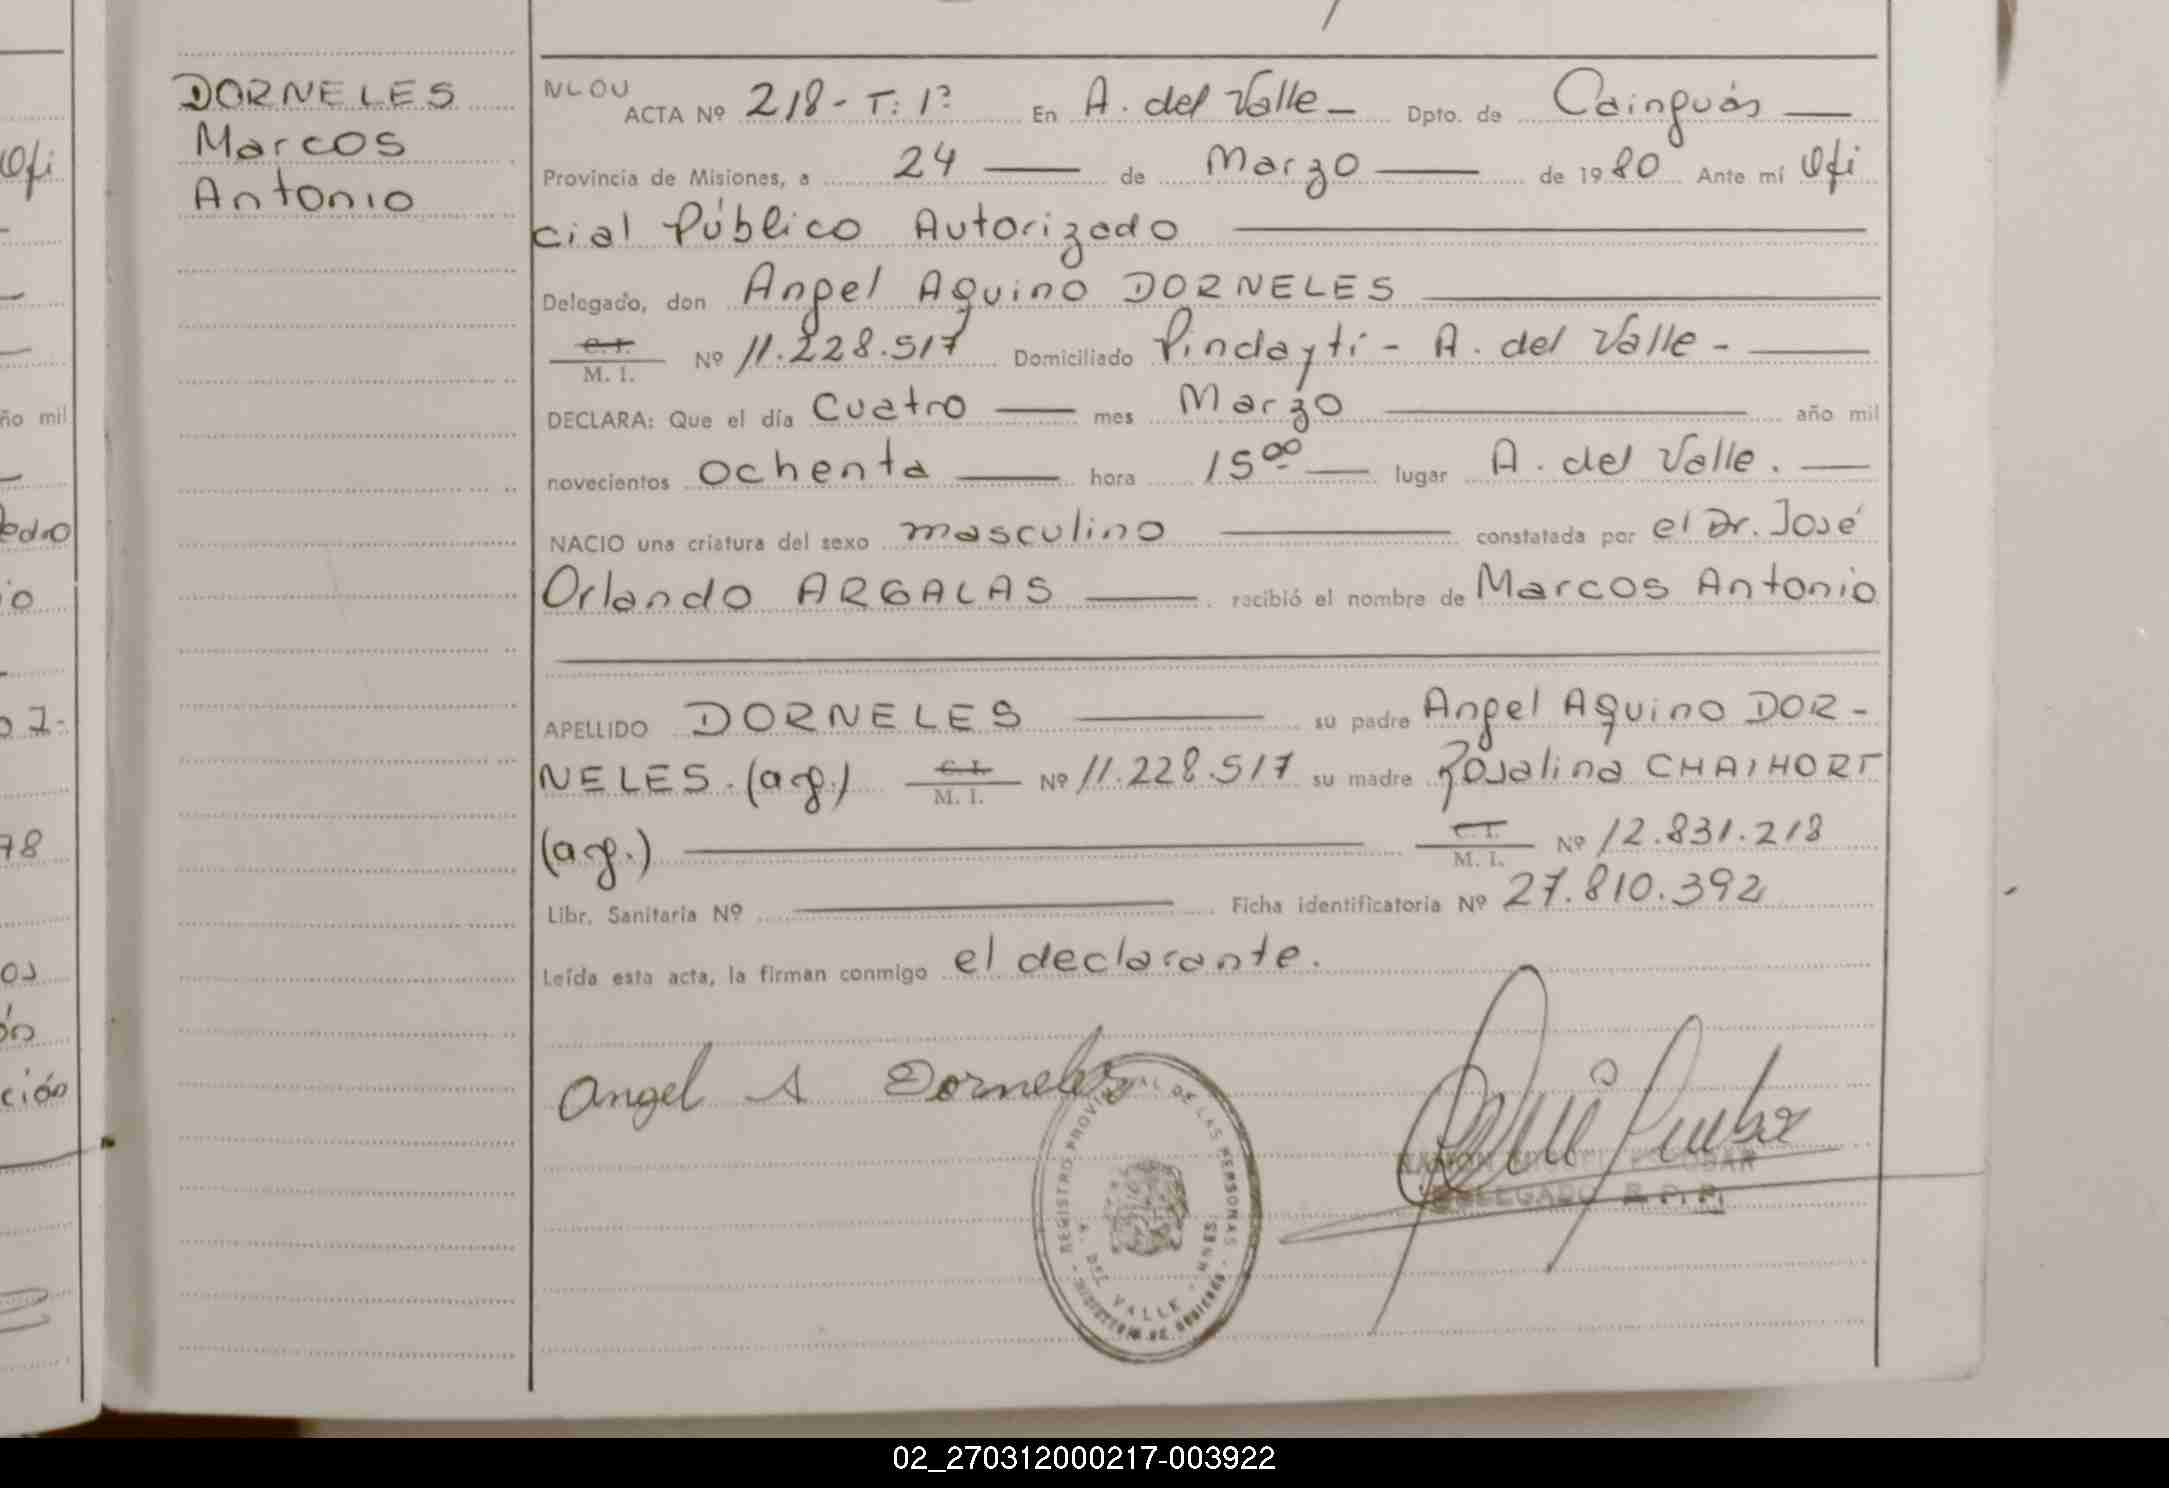 DORNELES
Marcos
Antonio
NLOU
ACTA Nº 218- T: 1º En A. del Valle Dpto. de Cainguás
Provincia de Misiones, a 24 de Marzo de 1980 Ante mí Ofi
cial Público Autorizado
Delegado, don Angel Aquino DORNELES
C. I.
M. I. Nº 11.228.517 Domiciliado Pindaytí - A. del Valle -
DECLARA: Que el día Cuatro mes Marzo año mil
novecientos ochenta hora 15⁰⁰ lugar A. del Valle.
NACIO una criatura del sexo masculino constatada por el Dr. José
Orlando ARGALAS recibió el nombre de Marcos Antonio
APELLIDO DORNELES su padre Angel Aquino DOR-
NELES. (arg.) C. I. M. I. Nº 11.228.517 su madre Rosalina CHAIHORT
(arg.) C. I. M. I. Nº 12.831.218
Libr. Sanitaria Nº Ficha identificatoria Nº 27.810.392
Leída esta acta, la firman conmigo el declarante.
Angel A Dorneles
REGISTRO PROVINCIAL DE LAS PERSONAS
A. DEL VALLE - MNES
MINISTERIO DE GOBIERNO
RAMON MIGUEL ESCOBAR
DELEGADO R. P. P.
Ofi
ño mil
edro
io
o 7-
78
os
ón
ción
02_270312000217-003922